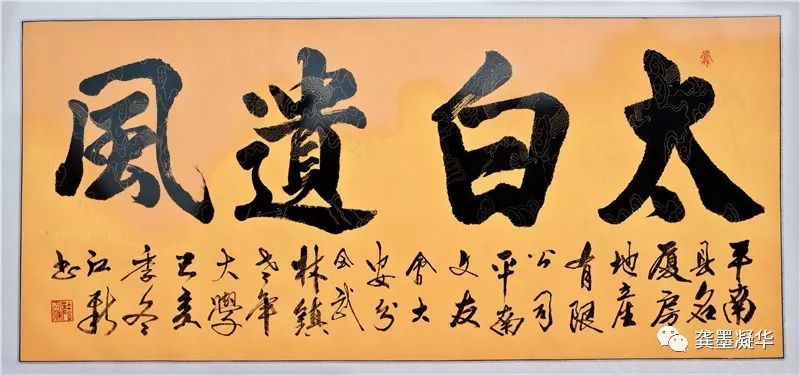 太白遺風
平南
县名
厦房
地产
有限
公司
平南
文友
會大
安分
会武
林鎮
老年
大學
己亥
季冬
江
书
龚墨凝华